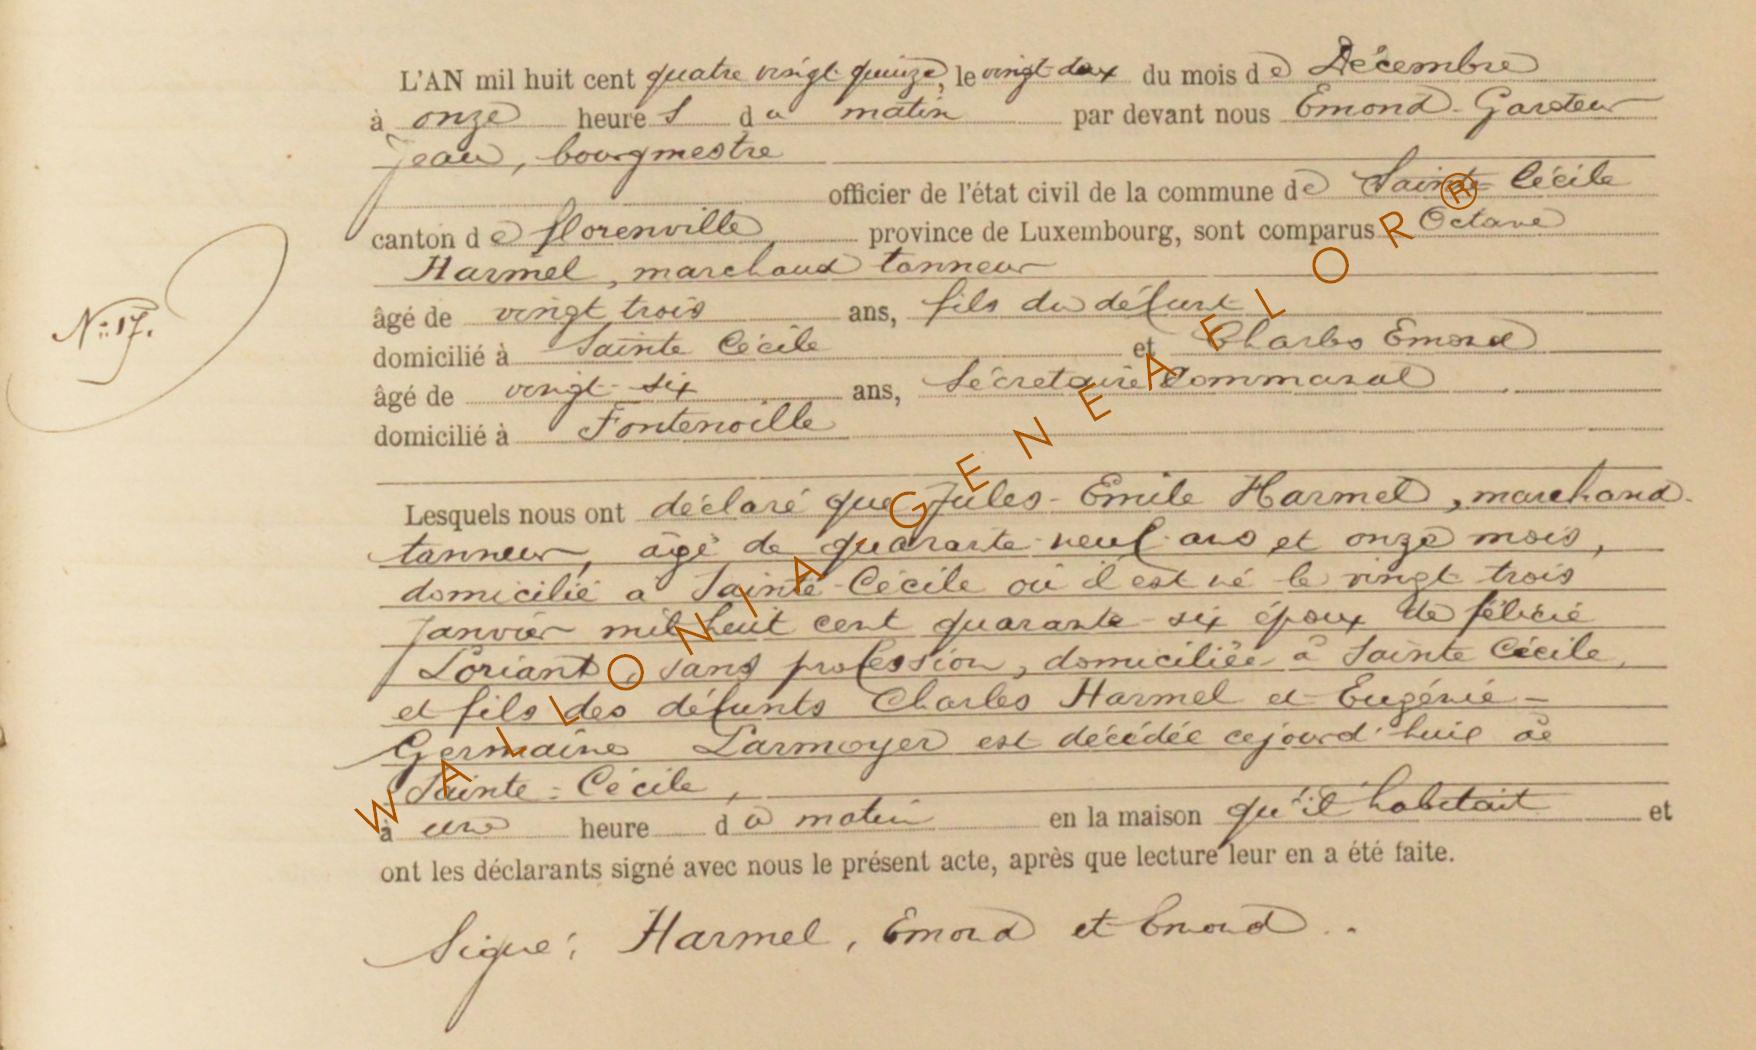 L'AN mil huit cent quatre vingt quinze, le vingt deux du mois de Décembre
à onze heures du matin par devant nous Emond
Jean, bourgmestre
officier de l'état civil de la commune de Sainte Cécile
canton de florenville province de Luxembourg, sont comparus Octave
Harmel, marchand tanneur
âgé de vingt trois ans, fils du défunt
N° 17.
domicilié à Sainte Cécile et Charles Emond
âgé de vingt-six ans, Sécretaire Communal
domicilié à Fontenoille
Lesquels nous ont déclaré que Jules-Emile Harmel, marchand
tanneur, âgé de quarante neuf ans et onze mois,
domicilié à Sainte-Cécile où il est né le vingt trois
Janvier mil huit cent quarante-six époux de félicie
Loriant, sans profession, domiciliée à Sainte Cécile,
et fils des défunts Charles Harmel et Eugénie-
Germaine Larmoyer est décédée cejourd'hui à
Sainte-Cécile,
à une heure du matin en la maison qu'il habitait et
ont les déclarants signé avec nous le présent acte, après que lecture leur en a été faite.
Signé: Harmel, Emond et Emond..
WALLONIA GENEAFLOR®